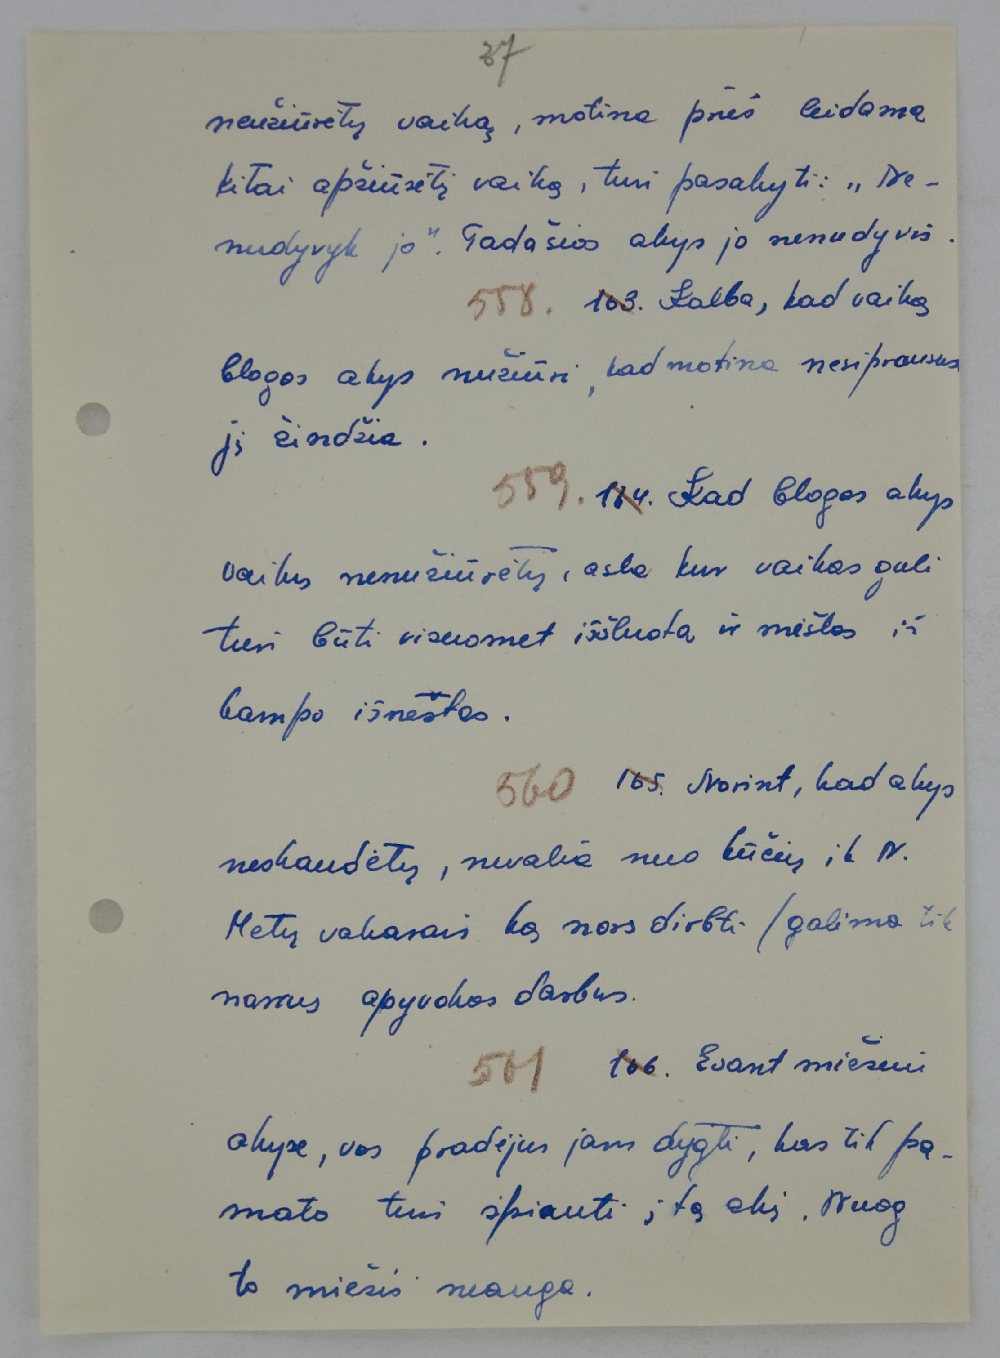 37
nenžiūrėtų vaiką, motina prieš leidama
kitai apžiūrėtį vaiką, turi pasakyti: „Ne-
nudyvyk jo". Tada šios akys jo nenudyvis.
558. 163. Kalba, kad vaiką
blogos akys nužiūri, kad motina nesiprausus
jį žindžia.
559. 164. Kad blogos akys
vaikų nenužiūrėtų, asla kur vaikas guli
turi būti visuomet iššluota ir mėšlas iš
kampo išneštas.
560 165. Norint, kad akys
neskaudėtų, nevalia nuo kūčių ik N.
Metų vakarais ką nors dirbti /galima tik
namų apyvokos darbus.
561 166. Esant miežiui
akyse, vos pradėjus jam dygti, kas tik pa-
mato turi spiauti į tą akį. Nuog
to miežis neauga.